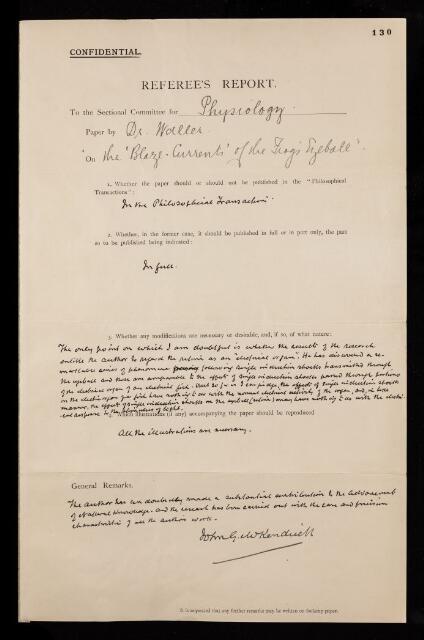 130
CONFIDENTIAL.
REFEREE'S REPORT.
To the Sectional Committee for Physiology.
Paper by Dr. Waller.
"On the 'Blaze-Currents' of the Frog's Eyeball".
1. Whether the paper should or should not be published in the "Philosophical
Transactions":
In the Philosophical Transactions.
2. Whether, in the former case, it should be published in full or in part only, the part
so to be published being indicated:
In full.
3. Whether any modifications are necessary or desirable, and, if so, of what nature:
The only point on which I am doubtful is whether the results of the research
entitle the author to regard the retina as an "electrical organ". He has discovered a re-
markable series of phenomena following single induction shocks transmitted through
the eyeball and these are comparable to the effects of single induction shocks passed through portions
of the electrical organ of an electrical fish. But so far as I can judge, the effects of single induction shocks
on the electric organ of a fish have nothing to do with the normal electrical activity of the organ, and, in like
manner, the effect of single induction shocks on the eyeball (retina) may have nothing to do with the electri-
cal response to the stimulus of light.
4. Which illustrations (if any) accompanying the paper should be reproduced
All the illustrations are necessary.
General Remarks.
The author has undoubtedly made a substantial contribution to the advancement
of Natural Knowledge, and the research has been carried out with the care and precision
characteristic of all the author's work.
John G. McKendrick
It is requested that any further remarks may be written on the fourth page.